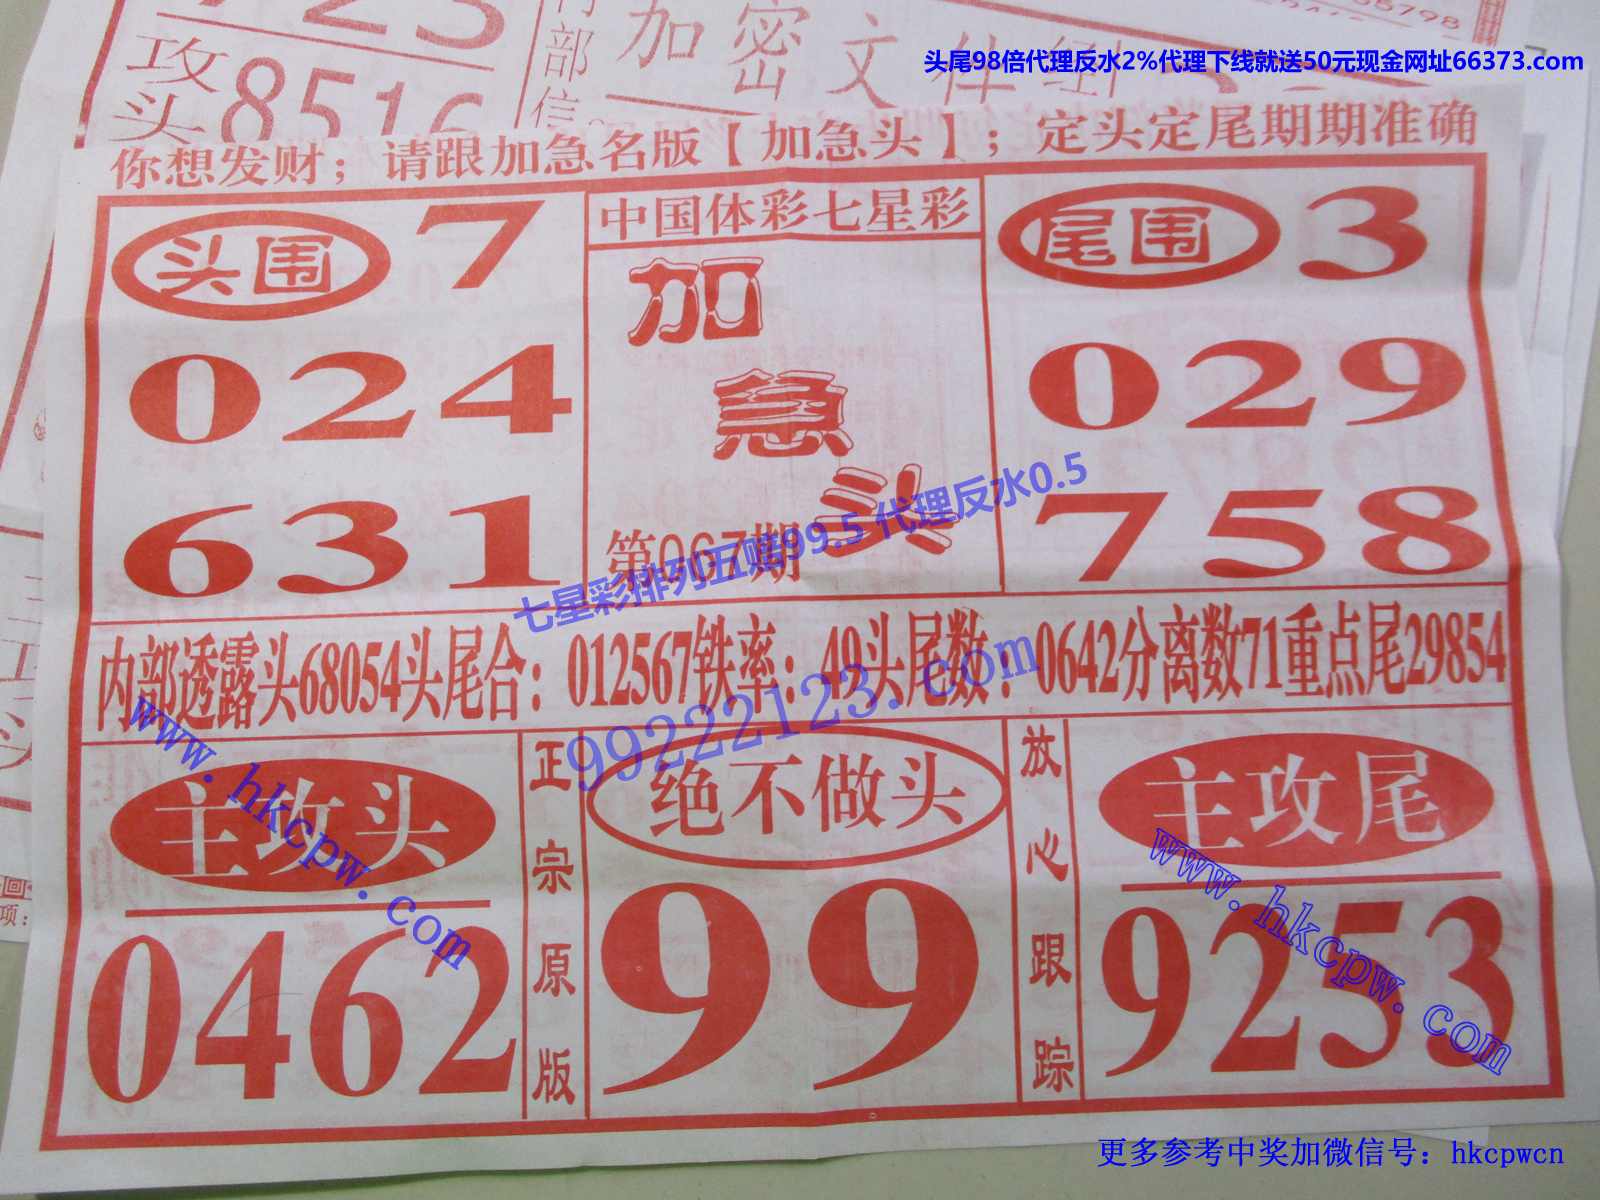 头尾98倍代理反水2%代理下线就送50元现金网址66373.com
攻头
8516
部信
加密文件
你想发财；请跟加急名版【加急头】；定头定尾期期准确
头围 7
024
631
中国体彩七星彩
加急头
第067期
尾围 3
029
758
七星彩排列五赔99.5 代理反水0.5
内部透露头68054头尾合：012567铁率：49头尾数：0642分离数71重点尾29854
99222123.com
www.hkcpw.com
主攻头
0462
正宗原版
绝不做头
99
放心跟踪
主攻尾
9253
www.hkcpw.com
更多参考中奖加微信号：hkcpwcn